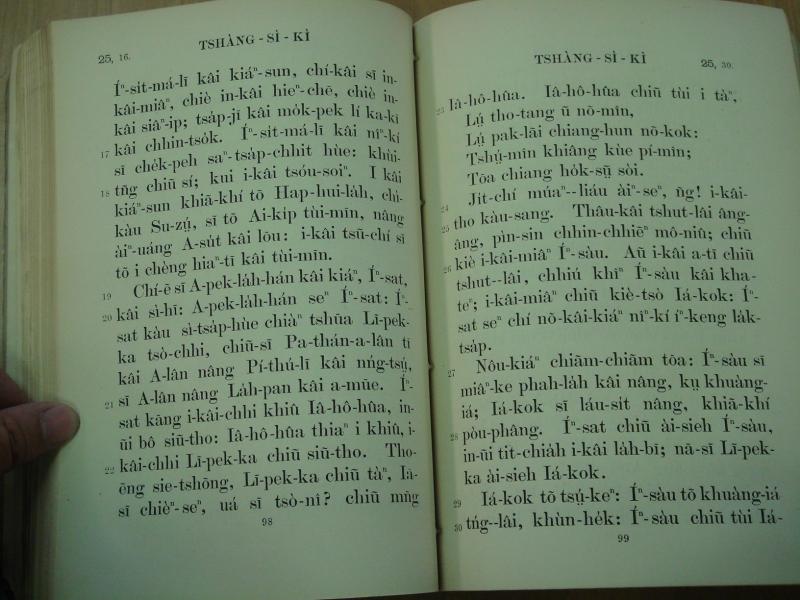 25, 16.
TSHÀNG - SÌ - KÌ
Íⁿ-sit-má-lī kâi kiáⁿ-sun, chí-kâi sĭ in-
kâi-miâⁿ, chiè in-kâi hieⁿ-chē, chiè in-
kâi siâⁿ-ip; tsa̍p-jī kâi mo̍k-pek lí ka-kī
17 kâi chhin-tso̍k. Íⁿ-sit-má-lī kâi nîⁿ-kí
sĭ che̍k-peh saⁿ-tsa̍p-chhit hùe: khùi-
18 tn̄g chiŭ sí; kui i-kâi tsóu-soiⁿ. I kâi
kiáⁿ-sun khiā-khí tŏ Hap-hui-la̍h, chi̍-
kàu Su-zṳ́, sĭ tŏ Ai-ki̍p tùi-mīn, nâng
àiⁿ-uáng A-su̍t kâi lōu: i-kâi tsŭ-chí sĭ
tŏ i chèng hiaⁿ-tĭ kâi tùi-mīn.
19 Chí-ē sĭ A-pek-la̍h-hán kâi kiáⁿ, Íⁿ-sat,
20 kâi sì-hī: A-pek-la̍h-hán seⁿ Íⁿ-sat: Íⁿ-
sat kàu sì-tsa̍p-hùe chiàⁿ tshūa Lī-pek-
ka tsò-chhi, chiŭ-sĭ Pa-thán-a-lân tī
kâi A-lân nâng Pí-thú-lī kâi nńg-tsṳ́,
21 sĭ A-lân nâng La̍h-pan kâi a-mūe. Íⁿ-
sat kāng i-kâi-chhi khiû Iâ-hô-hûa, in-
ūi bô siŭ-tho: Iâ-hô-hûa thiaⁿ i khiû, i-
22 kâi-chhi Lī-pek-ka chiŭ siŭ-tho. Tho-
ēng sie-tshōng, Lī-pek-ka chiŭ tàⁿ, Iā-
sĭ chièⁿ-seⁿ, uá sĭ tsò-nî? chiŭ mn̄g
98
TSHÀNG - SÌ - KÌ
25, 30.
23 Iâ-hô-hûa. Iâ-hô-hûa chiŭ tùi i tàⁿ,
Lṳ́ tho-tang ŭ nŏ-mîn,
Lṳ́ pak-lăi chiang-hun nŏ-kok:
Tshṳ́-mîn khiâng kùe pí-mîn;
Tōa chiang ho̍k-sṳ̄ sòi.
24 Ji̍t-chí múaⁿ--liáu ài-seⁿ, n̂g! i-kâi-
25 tho kàu-sang. Thâu-kâi tshut-lâi âng-
âng, pìn-sin chhin-chhiēⁿ mô-niû; chiŭ
26 kiè i-kâi-miâⁿ Íⁿ-sàu. Aŭ i-kâi a-tĭ chiŭ
tshut--lâi, chhiú khīⁿ Íⁿ-sàu kâi kha-
teⁿ; i-kâi-miâⁿ chiŭ kiè-tsò Iá-kok: Íⁿ-
sat seⁿ chí nŏ-kâi-kiáⁿ nîⁿ-kí íⁿ-keng la̍k-
tsa̍p.
27 Nôu-kiáⁿ chiām-chiām tōa: Íⁿ-sàu sĭ
miâⁿ-ke phah-la̍h kâi nâng, kṳ khuàng-
iá; Iá-kok sĭ láu-si̍t nâng, khiā-khí
28 pòu-phâng. Íⁿ-sat chiŭ ài-sieh Íⁿ-sàu,
in-ūi tit-chia̍h i-kâi la̍h-bī; nā-sĭ Lī-pek-
ka ài-sieh Iá-kok.
29 Iá-kok tŏ tsṳ́-keⁿ: Íⁿ-sàu tŏ khuàng-iá
30 tńg--lâi, khùn-he̍k: Íⁿ-sàu chiŭ tùi Iá-
99